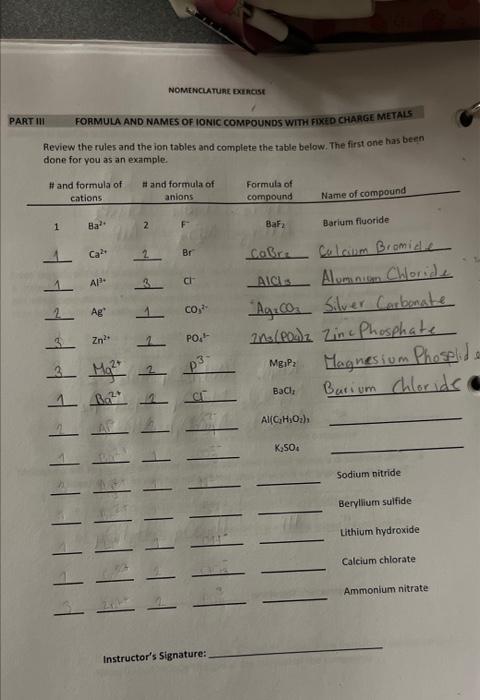 NOMENCLATURE EXERCISE
PART III FORMULA AND NAMES OF IONIC COMPOUNDS WITH FIXED CHARGE METALS
Review the rules and the ion tables and complete the table below. The first one has been
done for you as an example.
# and formula of cations # and formula of anions Formula of compound Name of compound
1 Ba²⁺ 2 F⁻ BaF₂ Barium fluoride
1 Ca²⁺ 2 Br⁻ CaBr₂ Calcium Bromide
1 Al³⁺ 3 Cl⁻ AlCl₃ Aluminium Chloride
2 Ag⁺ 1 CO₃²⁻ Ag₂CO₃ Silver Carbonate
3 Zn²⁺ 2 PO₄³⁻ Zn₃(PO₄)₂ Zinc Phosphate
3 Mg²⁺ 2 P³⁻ Mg₃P₂ Magnesium
1 Ba²⁺ 2 Cl⁻ BaCl₂ Barium Chloride
Al(C₂H₃O₂)₃
K₂SO₄
Sodium nitride
Beryllium sulfide
Lithium hydroxide
Calcium chlorate
Ammonium nitrate
Instructor's Signature: